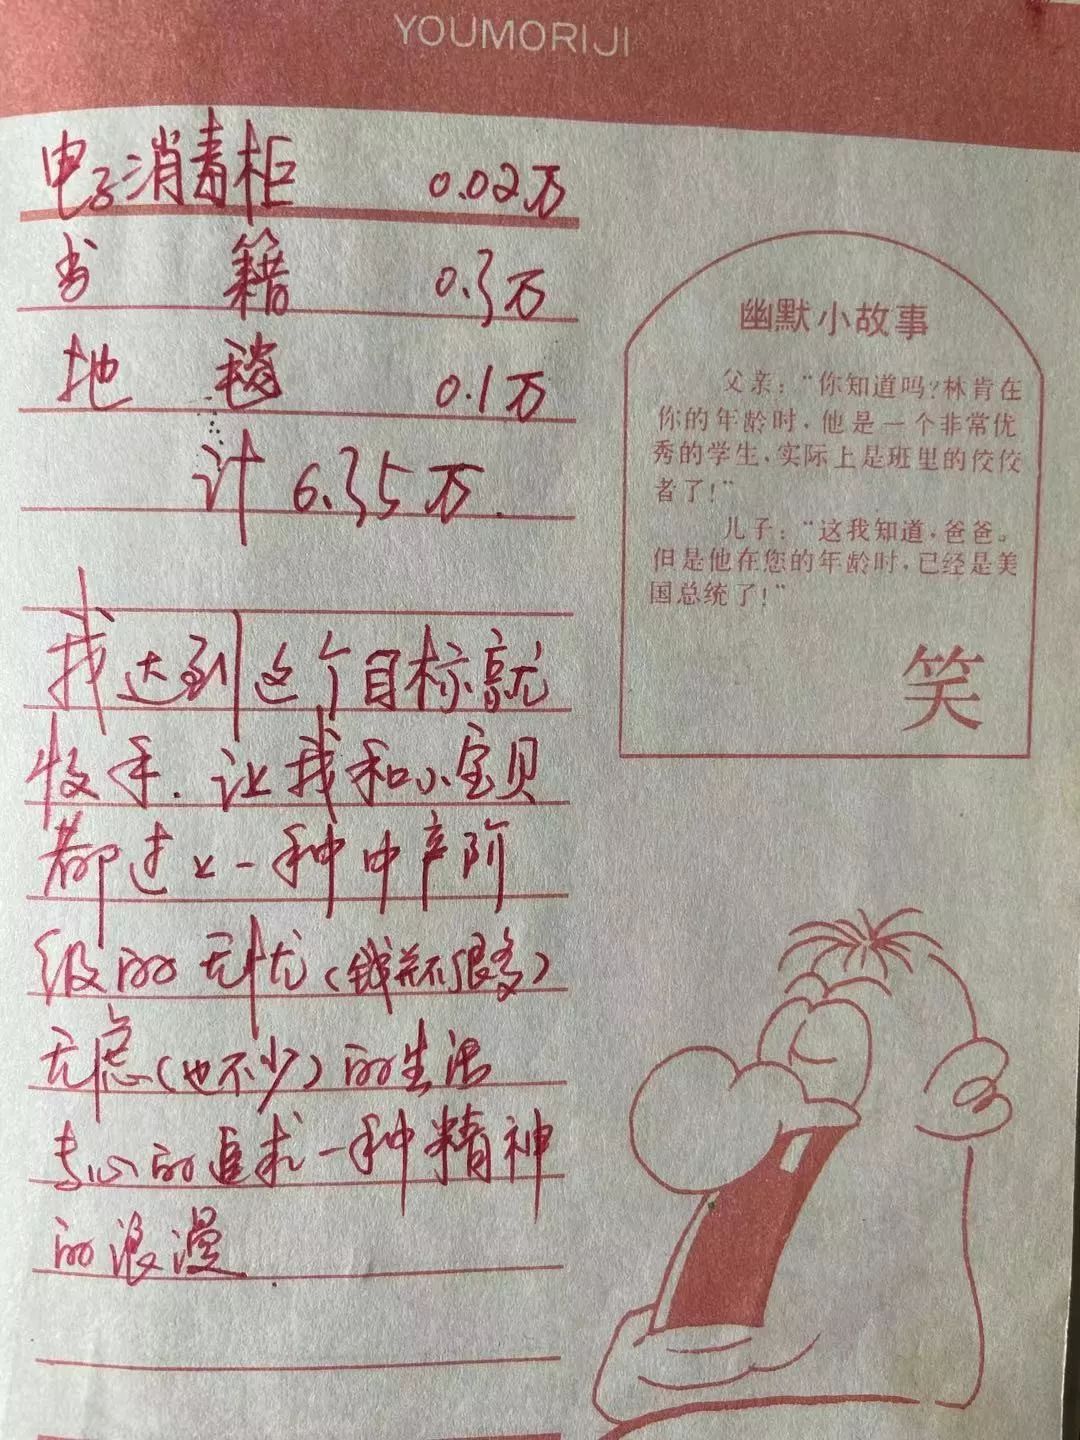 YOUMORIJI
电子消毒柜 0.02万
书 籍 0.3万
地 毯 0.1万
计 6.35万.
我达到这个目标就
收手.让我和小宝贝
都过上一种中产阶
级的无忧(钱并不很多)
无虑(也不少)的生活
专心的追求一种精神
的浪漫.
幽默小故事
父亲:“你知道吗?林肯在
你的年龄时,他是一个非常优
秀的学生,实际上是班里的佼佼
者了!”
儿子:“这我知道,爸爸。
但是他在您的年龄时,已经是美
国总统了!”
笑